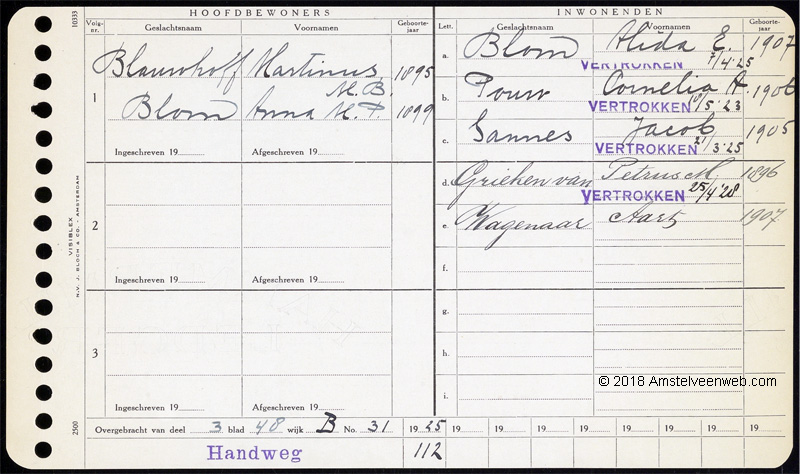 10333
HOOFDBEWONERS
INWONENDEN
Volg-nr.
Geslachtsnaam
Voornamen
Geboorte-jaar
Lett.
Geslachtsnaam
Voornamen
Geboorte-jaar
1
Blauwhoff Martinus 1895
M. B.
Blom Anna M. P. 1899
Ingeschreven 19
Afgeschreven 19
2
Ingeschreven 19
Afgeschreven 19
3
Ingeschreven 19
Afgeschreven 19
a. Blom Alida E. 1907
VERTROKKEN 7/4'25
b. Pouw Cornelia A. 1906
VERTROKKEN /5'23
c. Sannes Jacob 1905
VERTROKKEN 21/3'25
d. Grieken van Petrus M 1896
VERTROKKEN 25/4'28
e. Wagenaar Aart 1907
f.
g.
h.
i.
VISIBLEX
N.V. J. BLOCH & CO. - AMSTERDAM
2500
© 2018 Amstelveenweb.com
Overgebracht van deel 3 blad 48 wijk B No. 31 1925 19 19 19 19 19 19 19 19
Handweg 112